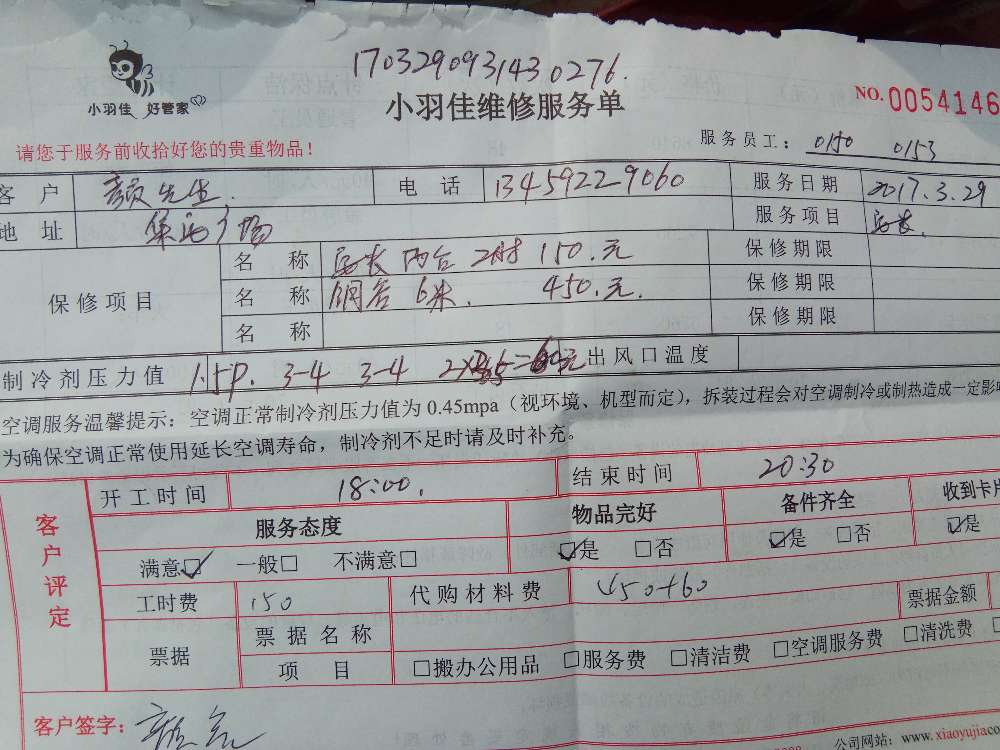 1703290931430276.
小羽佳 好管家
小羽佳维修服务单
NO. 0054146
请您于服务前收拾好您的贵重物品！
服务员工： 0150 0153
客 户 颜先生 电 话 13459229060 服务日期 2017.3.29
地 址 集美广场 服务项目
保修项目
名 称 两台 150.元 保修期限
名 称 铜管 6米. 450.元. 保修期限
名 称 保修期限
制冷剂压力值 1.5P. 3-4 3-4 出风口温度
空调服务温馨提示：空调正常制冷剂压力值为 0.45mpa（视环境、机型而定），拆装过程会对空调制冷或制热造成一定影
为确保空调正常使用延长空调寿命，制冷剂不足时请及时补充。
客户评定
开工时间 18:00. 结束时间 20:30
服务态度 物品完好 备件齐全 收到卡片
满意☑ 一般□ 不满意□ ☑是 □否 ☑是 □否 ☑是
工时费 150 代购材料费 450+60 票据金额
票据
票据名称
项 目 □搬办公用品 □服务费 □清洁费 □空调服务费 □清洗费
客户签字：
公司网站：www.xiaoyujia